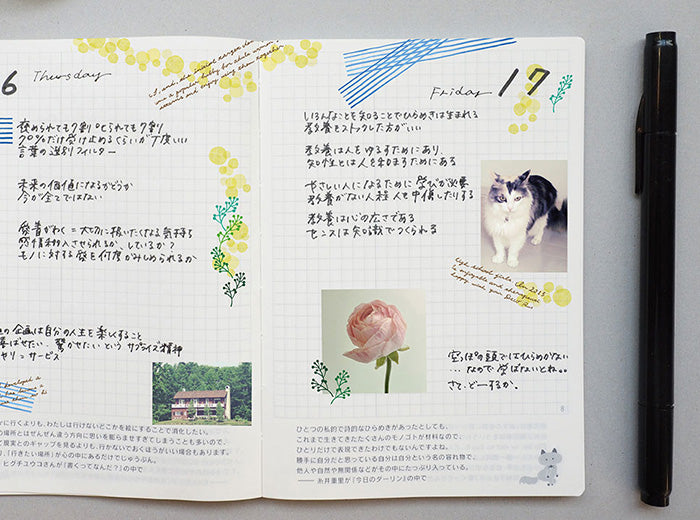 6 Thursday
褒められても7割 叱られても7割
70%だけ受け止めるぐらいが丁度いい
言葉の選別フィルター
未来の価値になるかどうか
今が全てではない
愛着がわく=大切に扱いたくなる気持ち
感情移入させられるか、しているか?
モノに対する愛を何度かみしめられるか
の企画は自分の人生を楽しむこと
喜ばせたい、驚かせたいという サプライズ精神
サービス
に行くよりも、わたしは行けないどこかを絵にすることで消化したい。
の場所とはぜんぜん違う方向に思いを膨らませすぎてしまうことも多いので、
て現実とのギャップを見るよりも、行かないでおくほうがいい場合もあります。
「行きたい場所」が心の中にあるだけでじゅうぶん。
ヒグチユウコさんが『書くってなんだ?』の中で
Friday 17
いろんなことを知ることでひらめきは生まれる
教養をストックした方がいい
教養は人をゆるすためにあり、
知性とは人を和ますためにある
やさしい人になるために 学びが必要
教養がない人程 人を中傷したりする
教養は心の広さである
センスは知識でつくられる
空っぽの頭ではひらめかない
…なので 学ばないとね。。
さて、どーするか。
8
ひとつの私的で詩的なひらめきがあったとしても、
これまで生きてきたたくさんのモノゴトが材料なので、
ひとりだけで表現できたわけでもないんですよね。
勝手に自分だと思っている自分は自分という名の容れ物で、
他人や自然や無関係などがその中にたっぷり入っている。
——糸井重里が『今日のダーリン』の中で